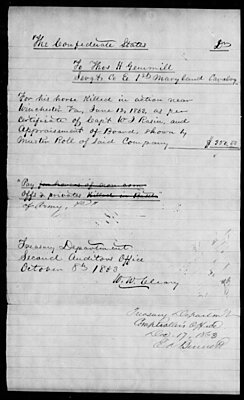 The Confederate States Dr
To Thos H Gemmill
Sergt Co E 1st Maryland Cavalry
For his horse killed in action near
Winchester Va, June 13, 1863, as per
Certificate of Capt W I Rasin, and
Appraisement of Board, shown by
Muster Roll of said Company
"Pay for horses of non com
offs & privates killed in Battle"
of Army,
Treasury Department
Second Auditors Office
October 8th 1883
W. W. Cleary
Treasury Department
Comptrollers Office
Dec 17, 1863